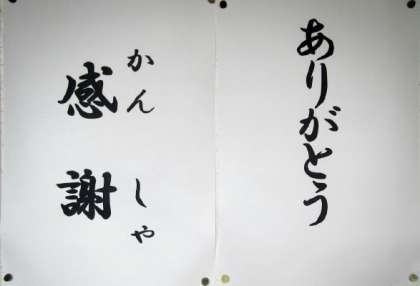 ありがとう
かんしゃ
感謝